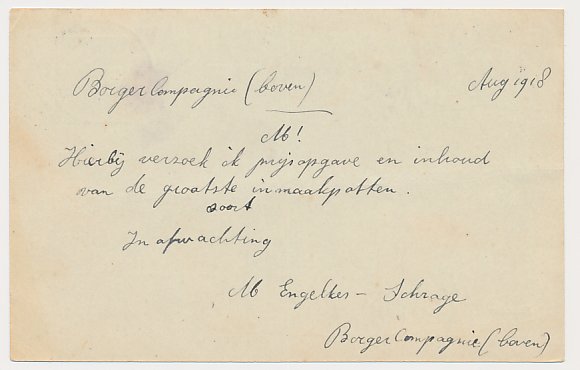 Borger Compagnie (boven)
Aug 1918
M!
Hierbij verzoek ik prijsopgave en inhoud
van de grootste inmaakpotten.
soort
In afwachting
M Engelkes - Schrage
Borger Compagnie (boven)